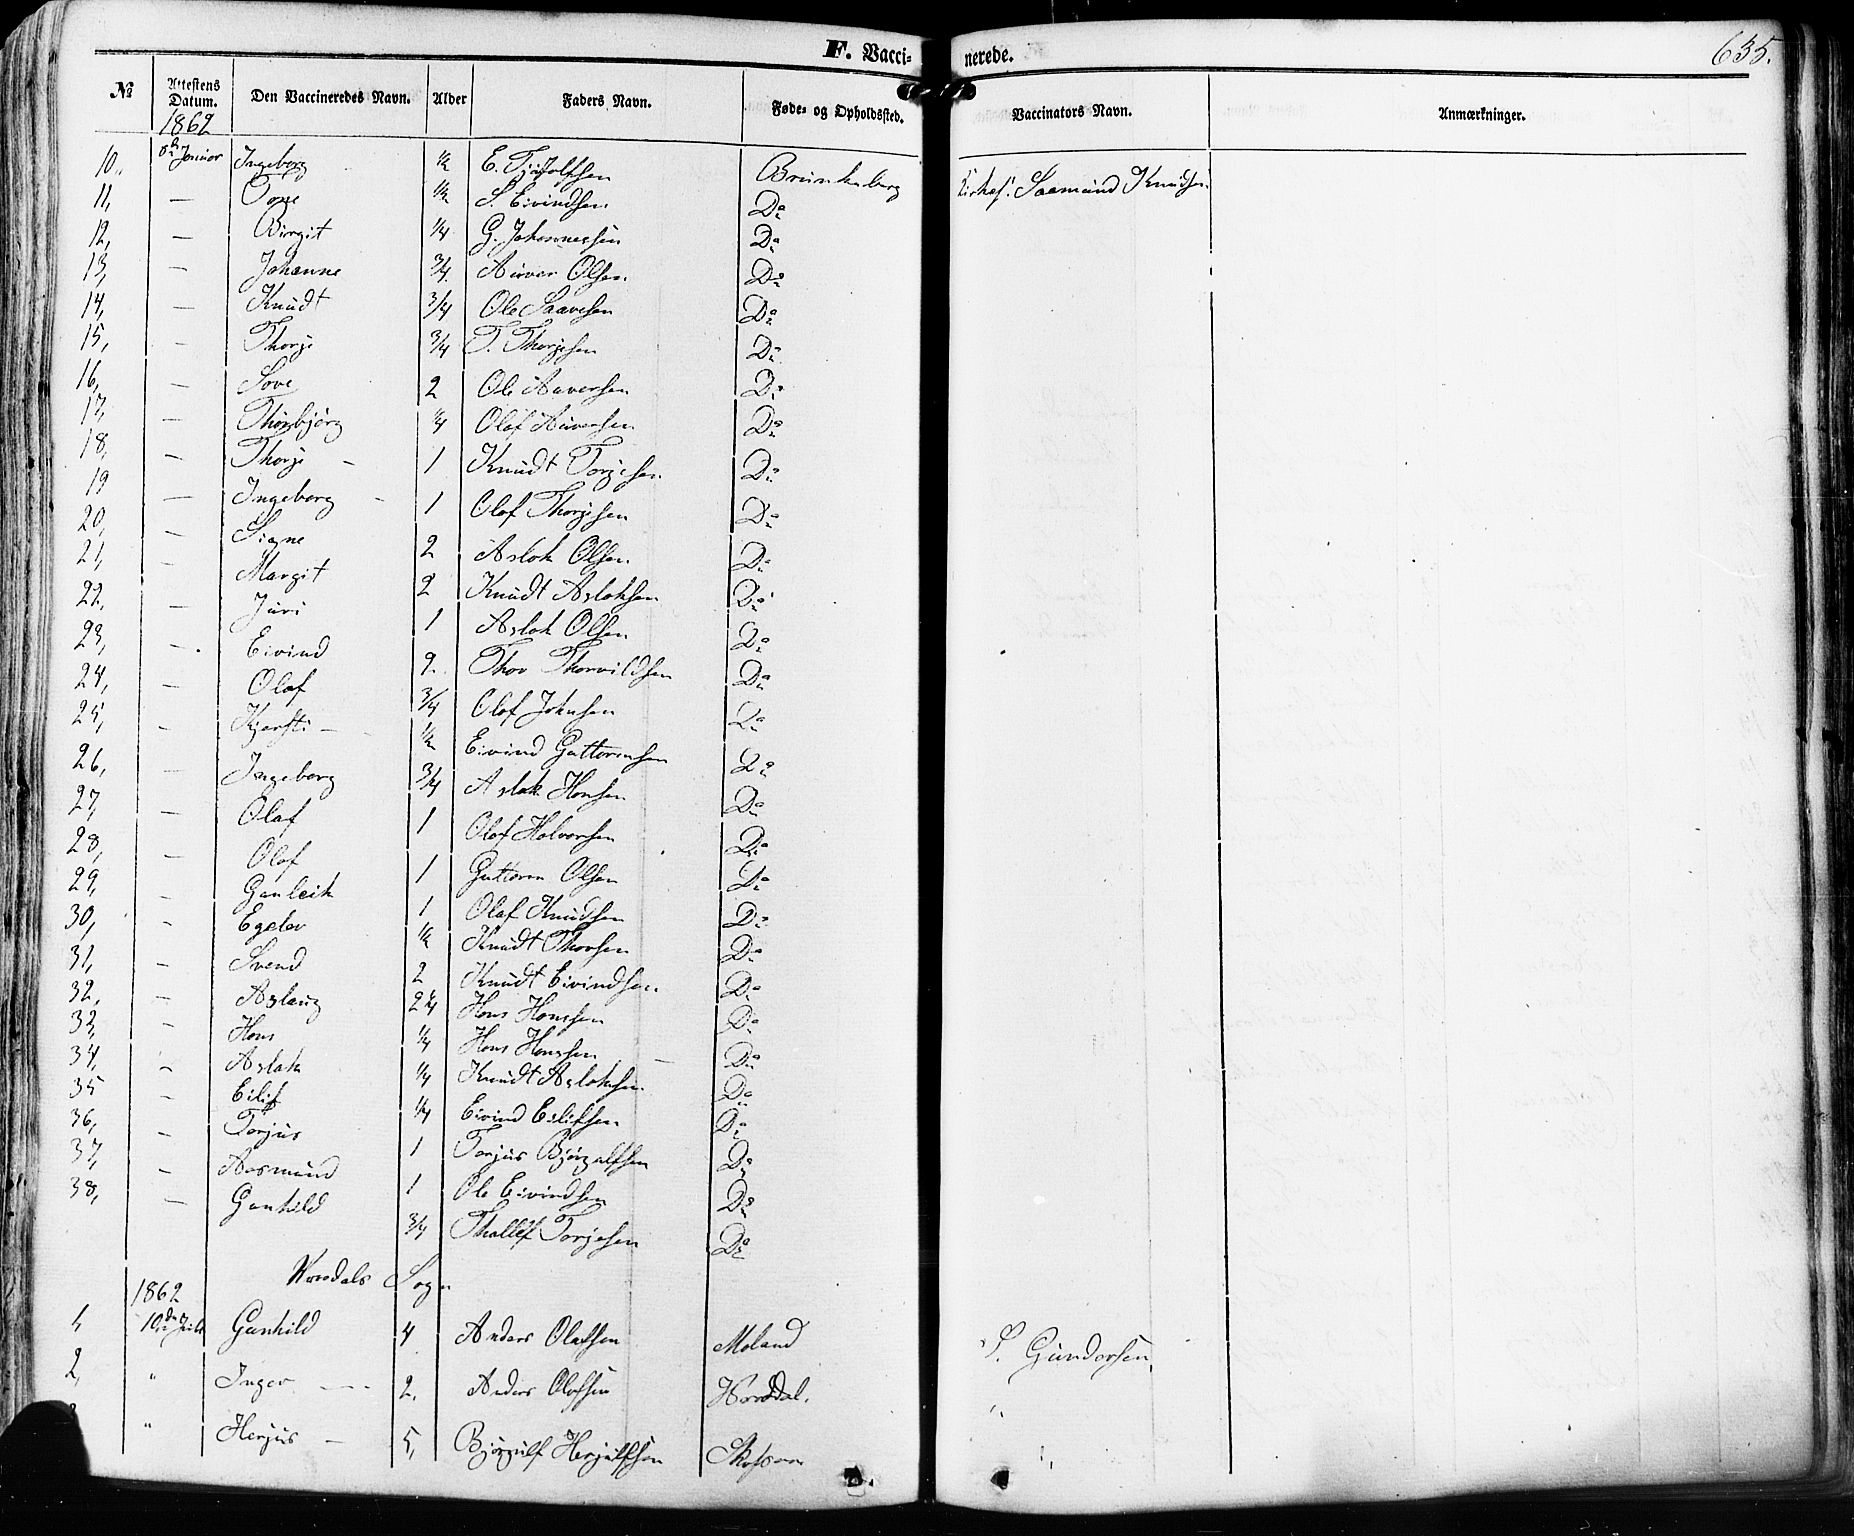 F. Vacci-
nerede.
635.
№ Attestens Datum. Den Vaccineredes Navn. Alder Faders Navn. Føde- og Opholdssted. Vaccinators Navn. Anmærkninger.
1862
10, Ingeborg 1/2 E. Brunkeberg Saamund Knudsen
11, — Tone 1/2 S. Eivindsen Do
12, — Birgit 1/4 G. Johannessen Do
13, — Johanne 3/4 Olsen Do
14, — Knudt 3/4 Ole Saavesen Do
15, — Thorje 3/4 T. Thorjesen Do
16, — Sove 2 Ole Aaversen Do
17, — Thorbjørg 1/4 Olaf Do
18, — Thorje — 1 Knudt Torjesen Do
19 — Ingeborg - 1 Olaf Thorjesen Do
20, — Signe 2 Aslak Olsen Do
21, — Margit 2 Knudt Aslaksen Do
22, — Juri 1 Aslak Olsen Do
23, — Eivind 2. Thor Thorvildsen Do
24, — Olaf 3/4 Olaf Johnsen Do
25, — Kjersti — 1/2 Eivind Guttormsen Do
26, — Ingeborg 3/4 Aslak Hansen Do
27, — Olaf 1 Olaf Halvorsen Do
28, — Olaf 1 Guttorm Olsen Do
29, — Gunleik 1 Olaf Knudsen Do
30, — Egelev 1/2 Knudt Thorsen Do
31, — Svend 2 Knudt Eivindsen Do
32, — Aslaug 2 1/4 Hans Hanssen Do
33, — Hans 1/4 Hans Hanssen Do
34, — Aslak 1/4 Knudt Aslaksen Do
35 — Eilif 1/4 Eivind Eilifsen Do
36, — Torjus 1 Torjus Bjørgulfsen Do
37, — Aasmund 1 Ole Eivindsen Do
38, — Gunhild 3/4 Thallef Torjesen Do
Sogn
1862
1, 10de Juli Gunhild 4 Anders Olafsen Moland S. Gundersen
2, " Inger — 2. Anders Olafsen
" Herjus — 5, Bjørgulf Herjulfsen "